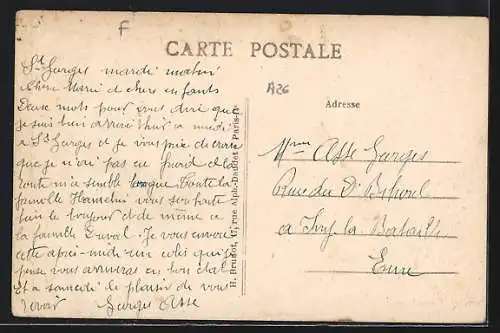 F
CARTE POSTALE
A26
Adresse
St Georges mardi matin
Chère Marie et chers enfants
Deux mots pour vous dire que
je suis bien arrivé hier a midi
a St Georges et je vous prie de croire
que je n'ai pas eu froid et la
route m'a semblé longue. Toute la
famille Hamelin vous souhaite
bien le bonjour et de même a
la famille Duval. Je vous envoie
cette après-midi un colis qui je
pense vous arrivera en bon état
Et a samedi le plaisir de vous
revoir Georges Asse
H. Brunot, 17, rue Alph.-Daudet, Paris
Mme Asse Georges
Rue du Dr
a Ivry la Bataille
Eure